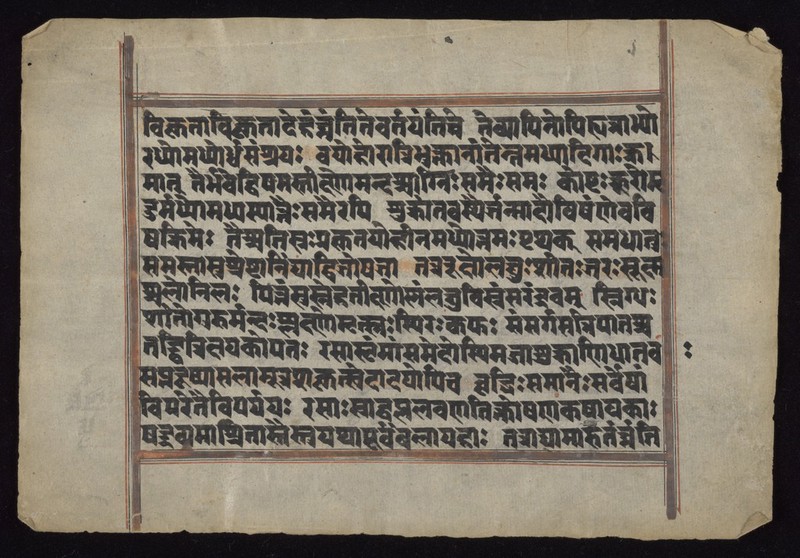 विकृताविकृतादेहंघ्नंतितेवर्तयंतिच तेव्यापिनोपिहृन्नाभ्यो
रधोमध्योर्ध्वसंश्रयाः वयोहोरात्रिभुक्तानांतेन्तमध्यादिगाःक्र
मात् तैर्भवेद्विषमस्तीक्ष्णोमन्दश्चाग्निःसमैःसमः कोष्टःक्रूरोमृ
दुर्मध्योमध्यस्यात्तैःसमैरपि शुक्रार्तवस्थैर्जन्मादौविषेणेववि
षक्रिमेः तैश्चतिस्रःप्रकृतयोहीनमध्योत्तमाःपृथक् समधातुः
समस्तासुश्रेष्ठानिंद्याद्विदोषजा तत्ररूक्षोलघुःशीतःखरःसूक्ष्म
श्चलोनिलः पित्तंसस्नेहतीक्ष्णोष्णंलघुविस्रंसरंद्रवम् स्निग्धः
शीतोगुरुर्मंदःश्लक्ष्णोमृत्स्नःस्थिरःकफः संसर्गसन्निपातश्च
तद्द्वित्रिक्षयकोपतः रसासृङ्मांसमेदोस्थिमज्जाशुक्राणिधातवः
सप्तदूष्यामलामूत्रशकृत्स्वेदादयोपिच वृद्धिःसमानैःसर्वेषां
विपरीतैर्विपर्ययः रसाःस्वाद्वम्ललवणतिक्तोषणकषायकाः
षड्द्रव्यमाश्रितास्तेचयथापूर्वंबलावहाः तत्राद्यामारुतंघ्नंति